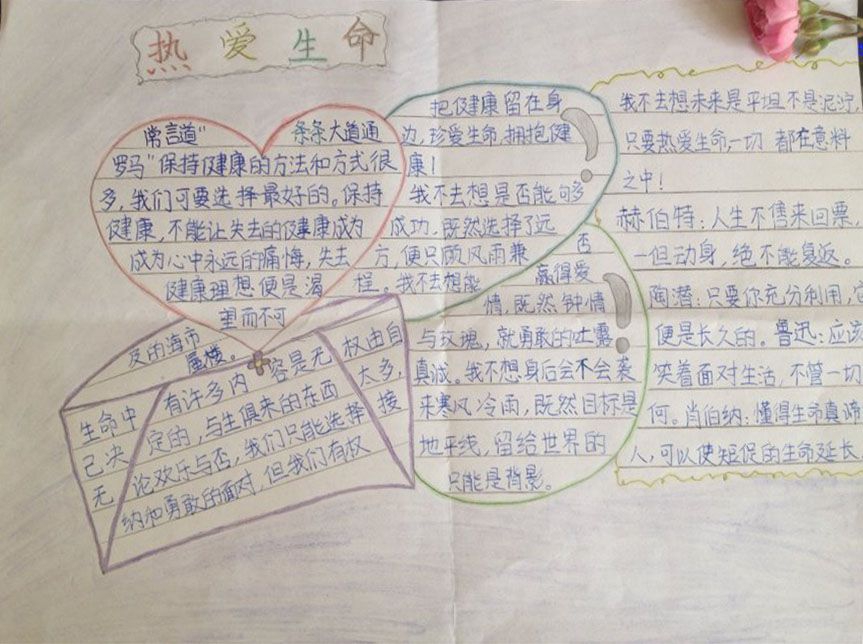 热爱生命
常言道"条条大道通
罗马"保持健康的方法和方式很
多,我们可要选择最好的。保持
健康,不能让失去的健康成为
成为心中永远的痛悔,失去
健康理想便是渴
望而不可
及的海市
蜃楼。
生命中
有许多内
容是无
权由自
己决
定的,与生俱来的东西
太多,
无
论欢乐与否,我们只能选择
接
纳和勇敢的面对,但我们有权
把健康留在身
边,珍爱生命,拥抱健
康!
我不去想是否能句多
成功,既然选择了远
方,便只顾风雨兼
程。我不去想能
否
赢得爱
情,既然钟情
与玫瑰,就勇敢的吐露
真诚。我不想身后会不会袭
来寒风冷雨,既然目标是
地平线,留给世界的
只能是背影。
我不去想未来是平坦不是泥泞,
只要热爱生命一切 都在意料
之中!
赫伯特:人生不售来回票,
一但动身,绝不能复返。
陶潜:只要你充分利用,
便是长久的。鲁迅:应该
笑着面对生活,不管一切
何。肖伯纳:懂得生命真谛
人,可以使短促的生命延长